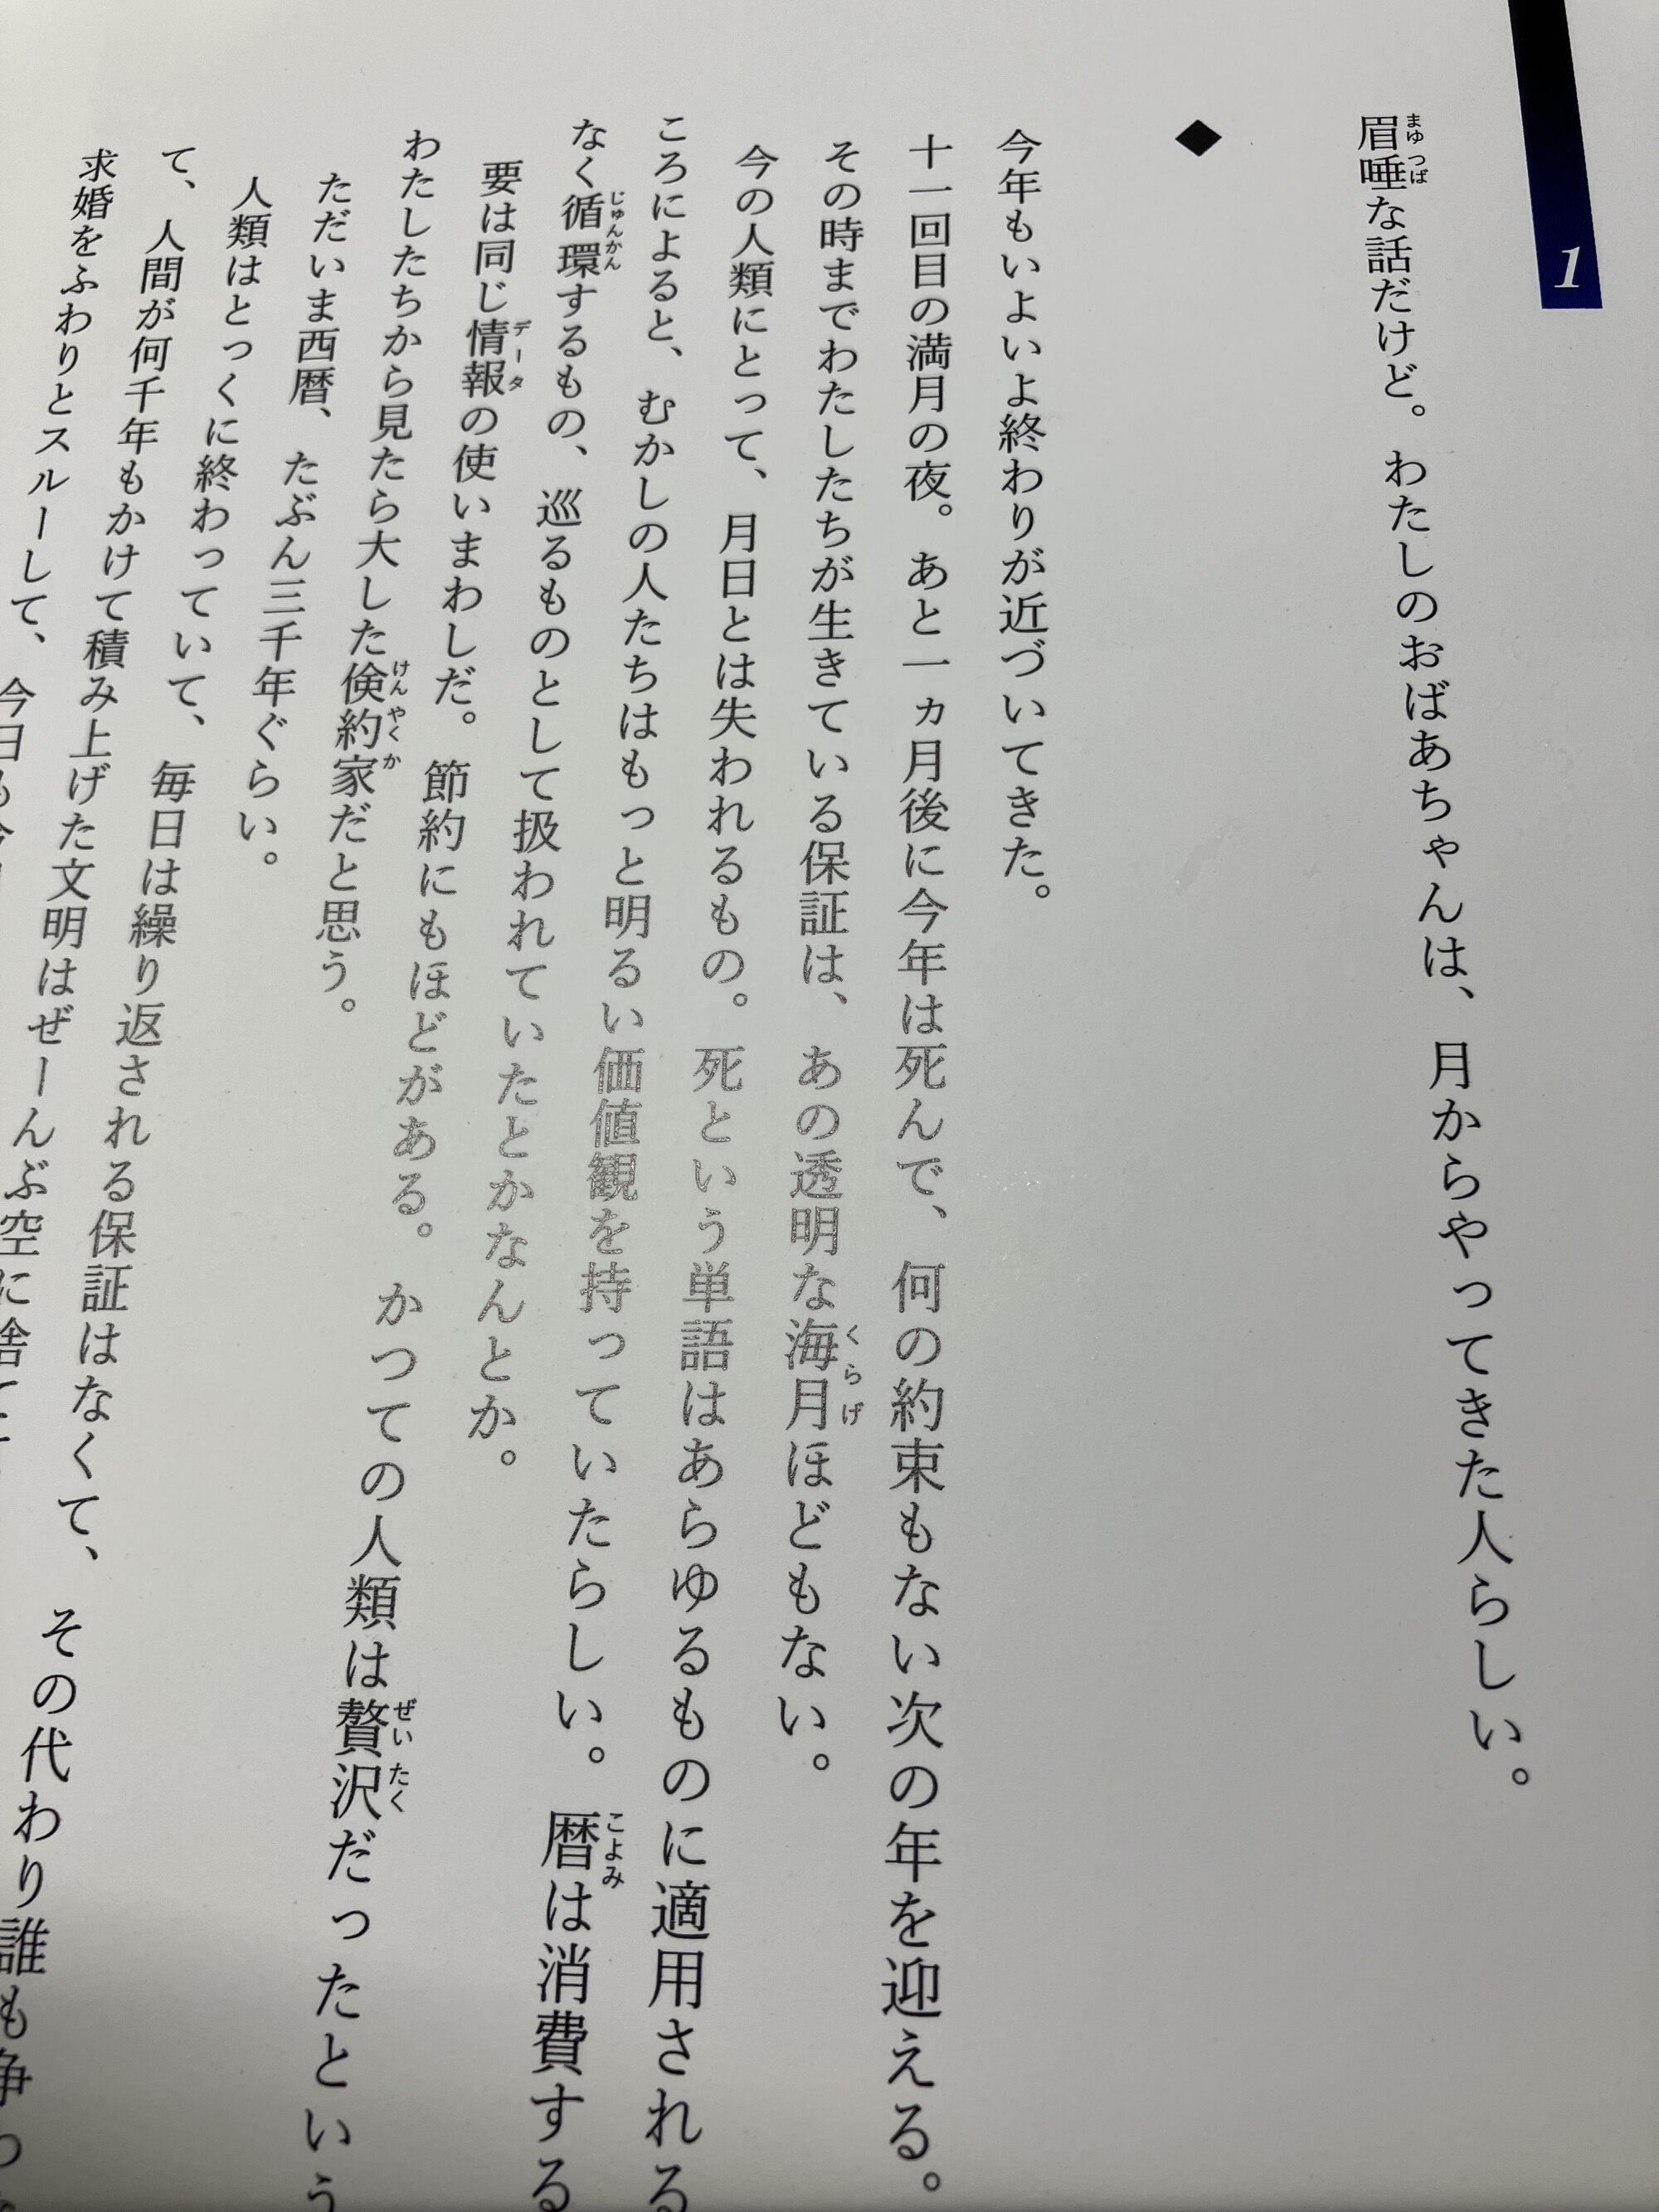 1
眉唾な話だけど。わたしのおばあちゃんは、月からやってきた人らしい。
◆
今年もいよいよ終わりが近づいてきた。
十一回目の満月の夜。あと一ヵ月後に今年は死んで、何の約束もない次の年を迎える。
その時までわたしたちが生きている保証は、あの透明な海月ほどもない。
今の人類にとって、月日とは失われるもの。死という単語はあらゆるものに適用される
ころによると、むかしの人たちはもっと明るい価値観を持っていたらしい。暦は消費する
なく循環するもの、巡るものとして扱われていたとかなんとか。
要は同じ情報の使いまわしだ。節約にもほどがある。かつての人類は贅沢だったという
わたしたちから見たら大した倹約家だと思う。
ただいま西暦、たぶん三千年ぐらい。
人類はとっくに終わっていて、毎日は繰り返される保証はなくて、その代わり誰も争わ
て、人間が何千年もかけて積み上げた文明はぜーんぶ空に捨て
求婚をふわりとスルーして、今日も